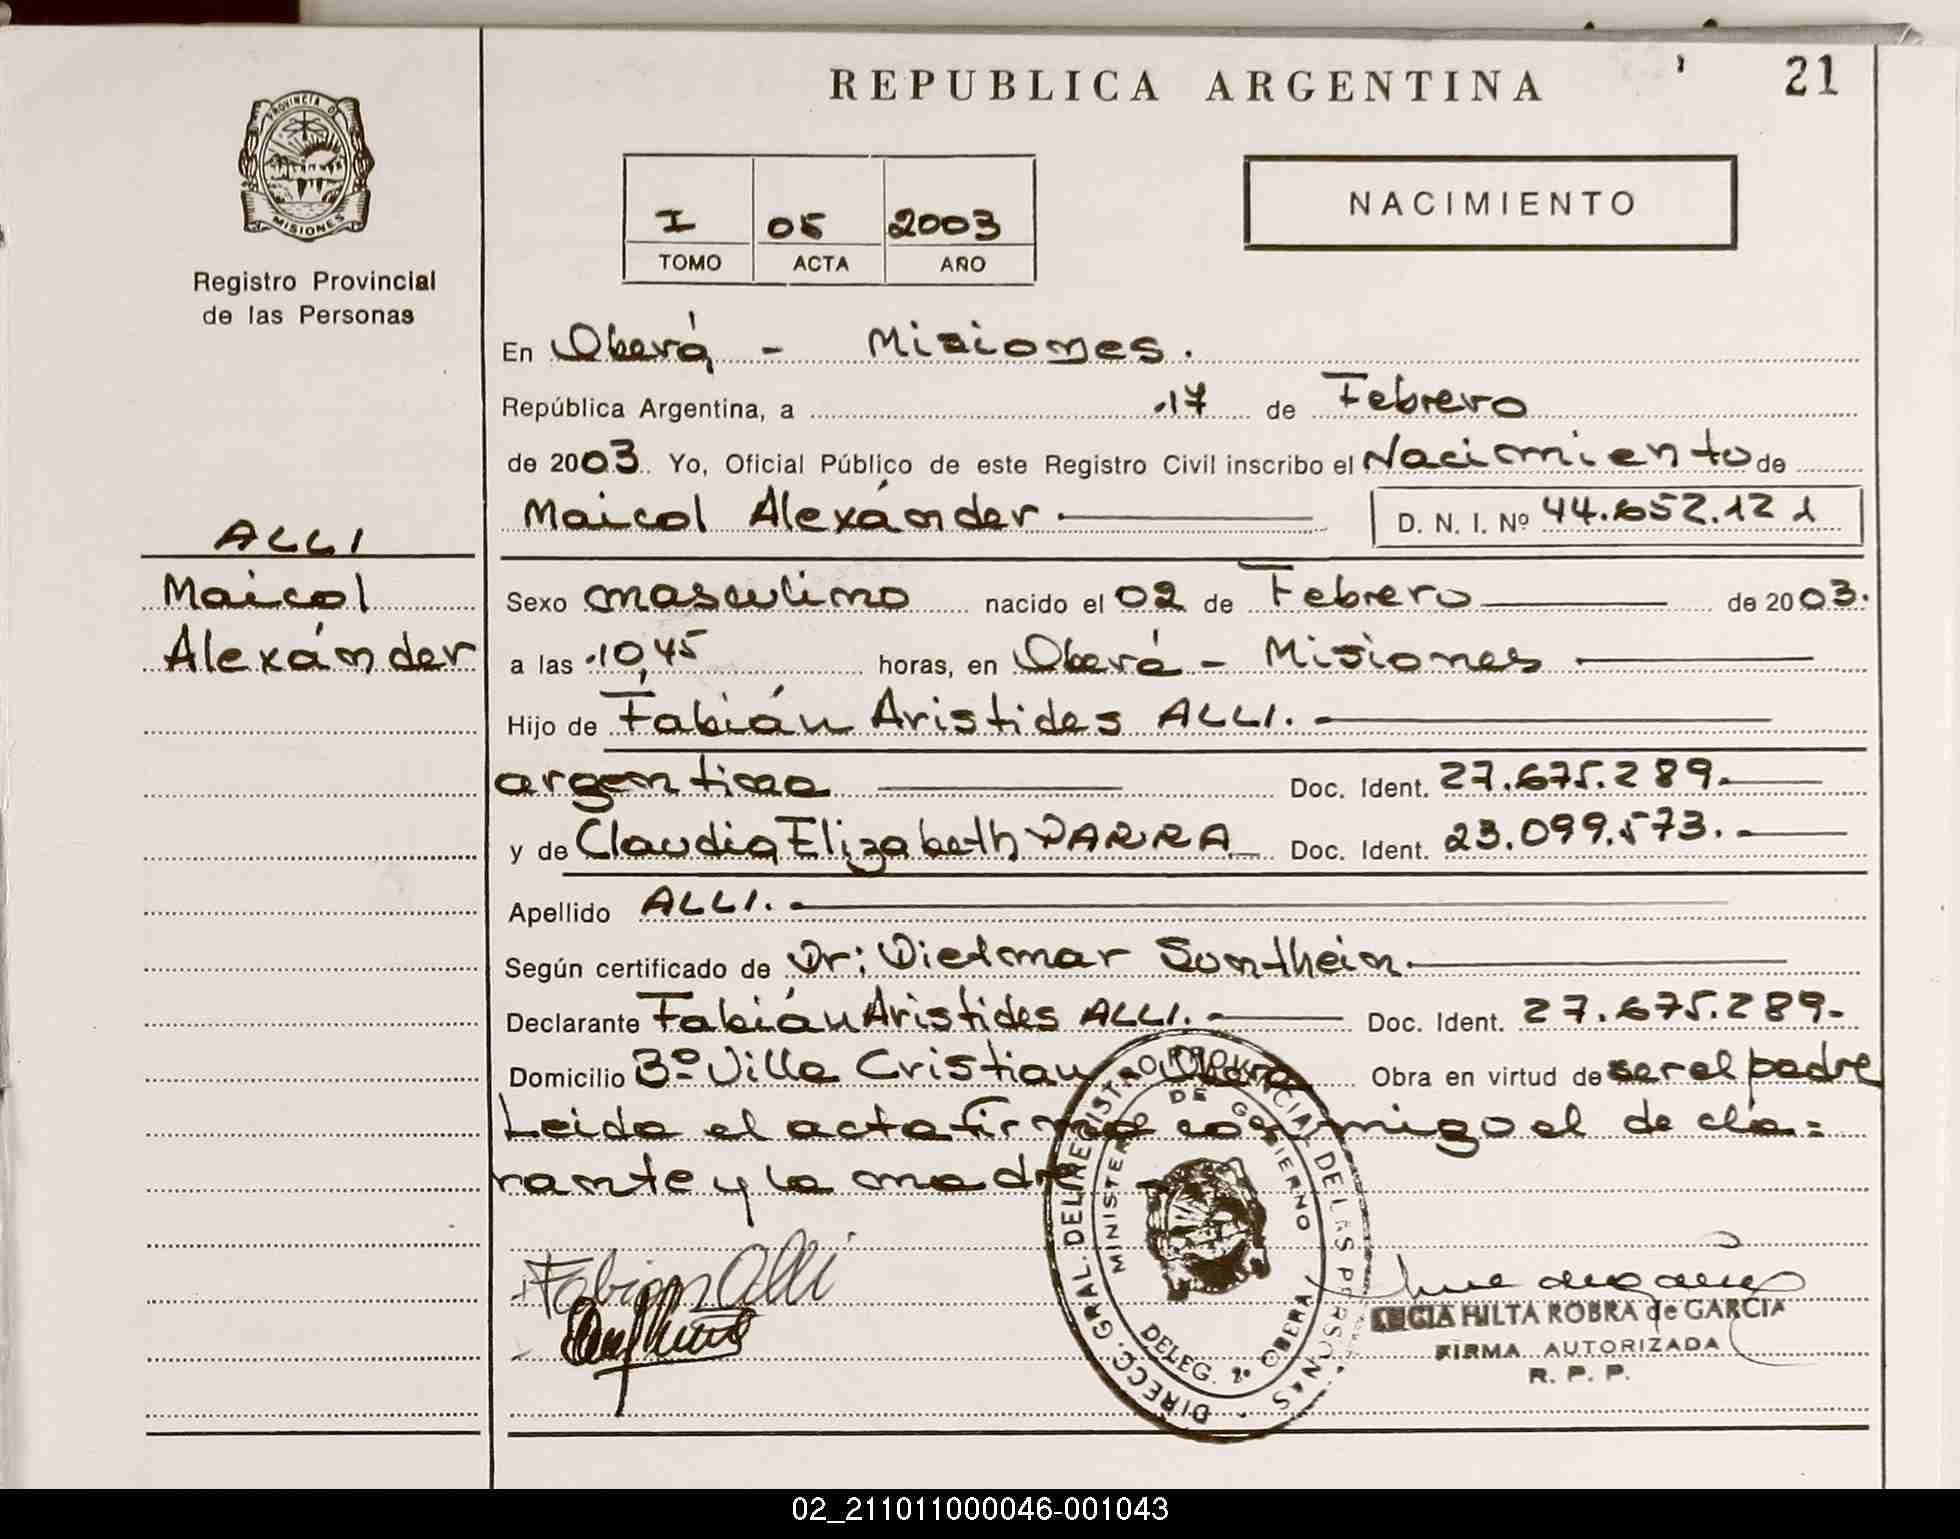 REPUBLICA ARGENTINA
21
PROVINCIA DE
MISIONES
Registro Provincial
de las Personas
I 05 2003
TOMO ACTA AÑO
NACIMIENTO
En Oberá - Misiones.
República Argentina, a 17 de Febrero
de 2003. Yo, Oficial Público de este Registro Civil inscribo el Nacimiento de
Maicol Alexánder D. N. I. Nº 44.652.121
ALLI
Maicol
Alexánder
Sexo masculino nacido el 02 de Febrero de 2003.
a las 10,45 horas, en Oberá - Misiones
Hijo de Fabián Aristides ALLI.
argentino Doc. Ident. 27.675.289.
y de Claudia Elizabeth PARRA Doc. Ident. 23.099.573.
Apellido ALLI.
Según certificado de Dr: Dietmar Sontheim
Declarante Fabián Aristides ALLI. Doc. Ident. 27.675.289-
Domicilio Bº Villa Cristian Oberá Obra en virtud de ser el padre
Leida el acta firma conmigo el decla=
rante y la madre
Fabian Alli
DIRECC. GRAL. DEL REGISTRO PROVINCIAL DE LAS PERSONAS
MINISTERIO DE GOBIERNO
DELEG. 2º OBERA
HILTA ROBRA de GARCIA
FIRMA AUTORIZADA
R. P. P.
02_211011000046-001043